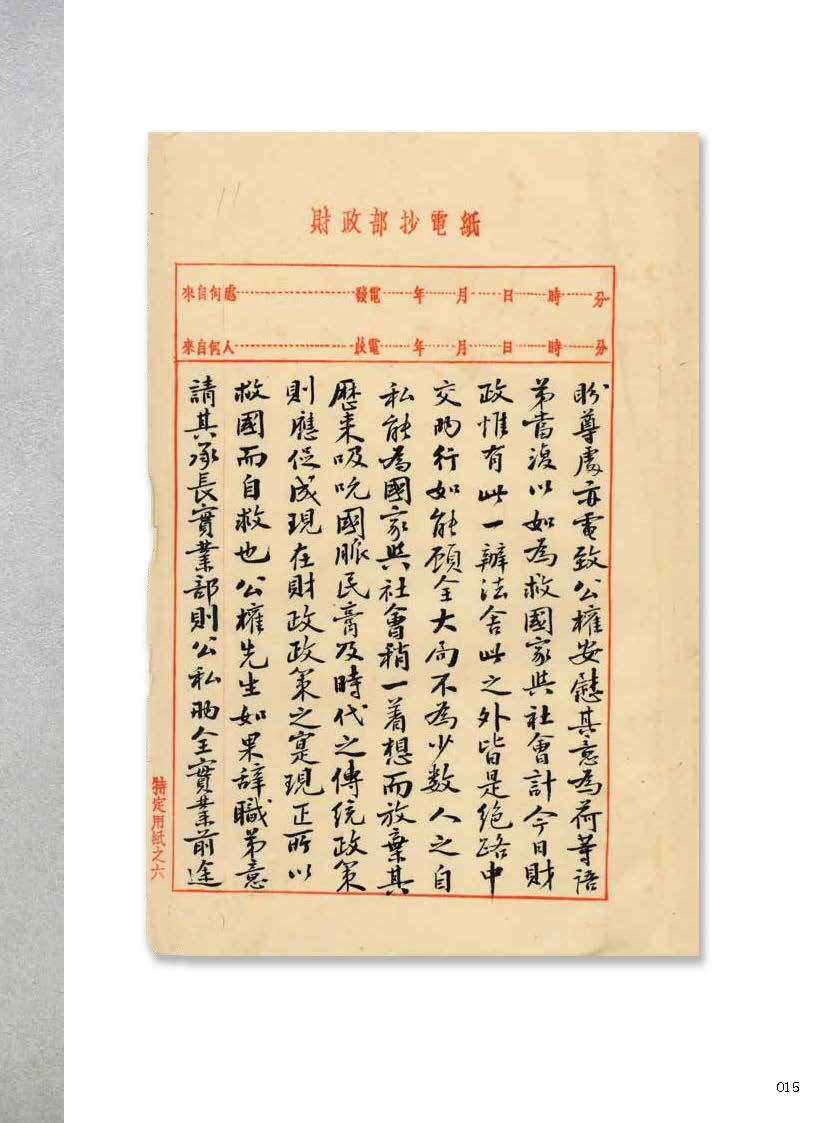 財政部抄電紙
來自何處 發電 年 月 日 時 分
來自何人 收電 年 月 日 時 分
盼尊處亦電致公權安慰其意為荷等語
弟當復以如為救國家與社會計今日財
政惟有此一辦法舍此之外皆是絕路中
交兩行如能顧全大局不為少數人之自
私能為國家與社會稍一着想而放棄其
歷来吸吮國脈民膏及時代之傳統政策
則應促成現在財政政策之寔現正所以
救國而自救也公權先生如果辭職弟意
請其承長實業部則公私兩全實業前途
特定用紙之六
015